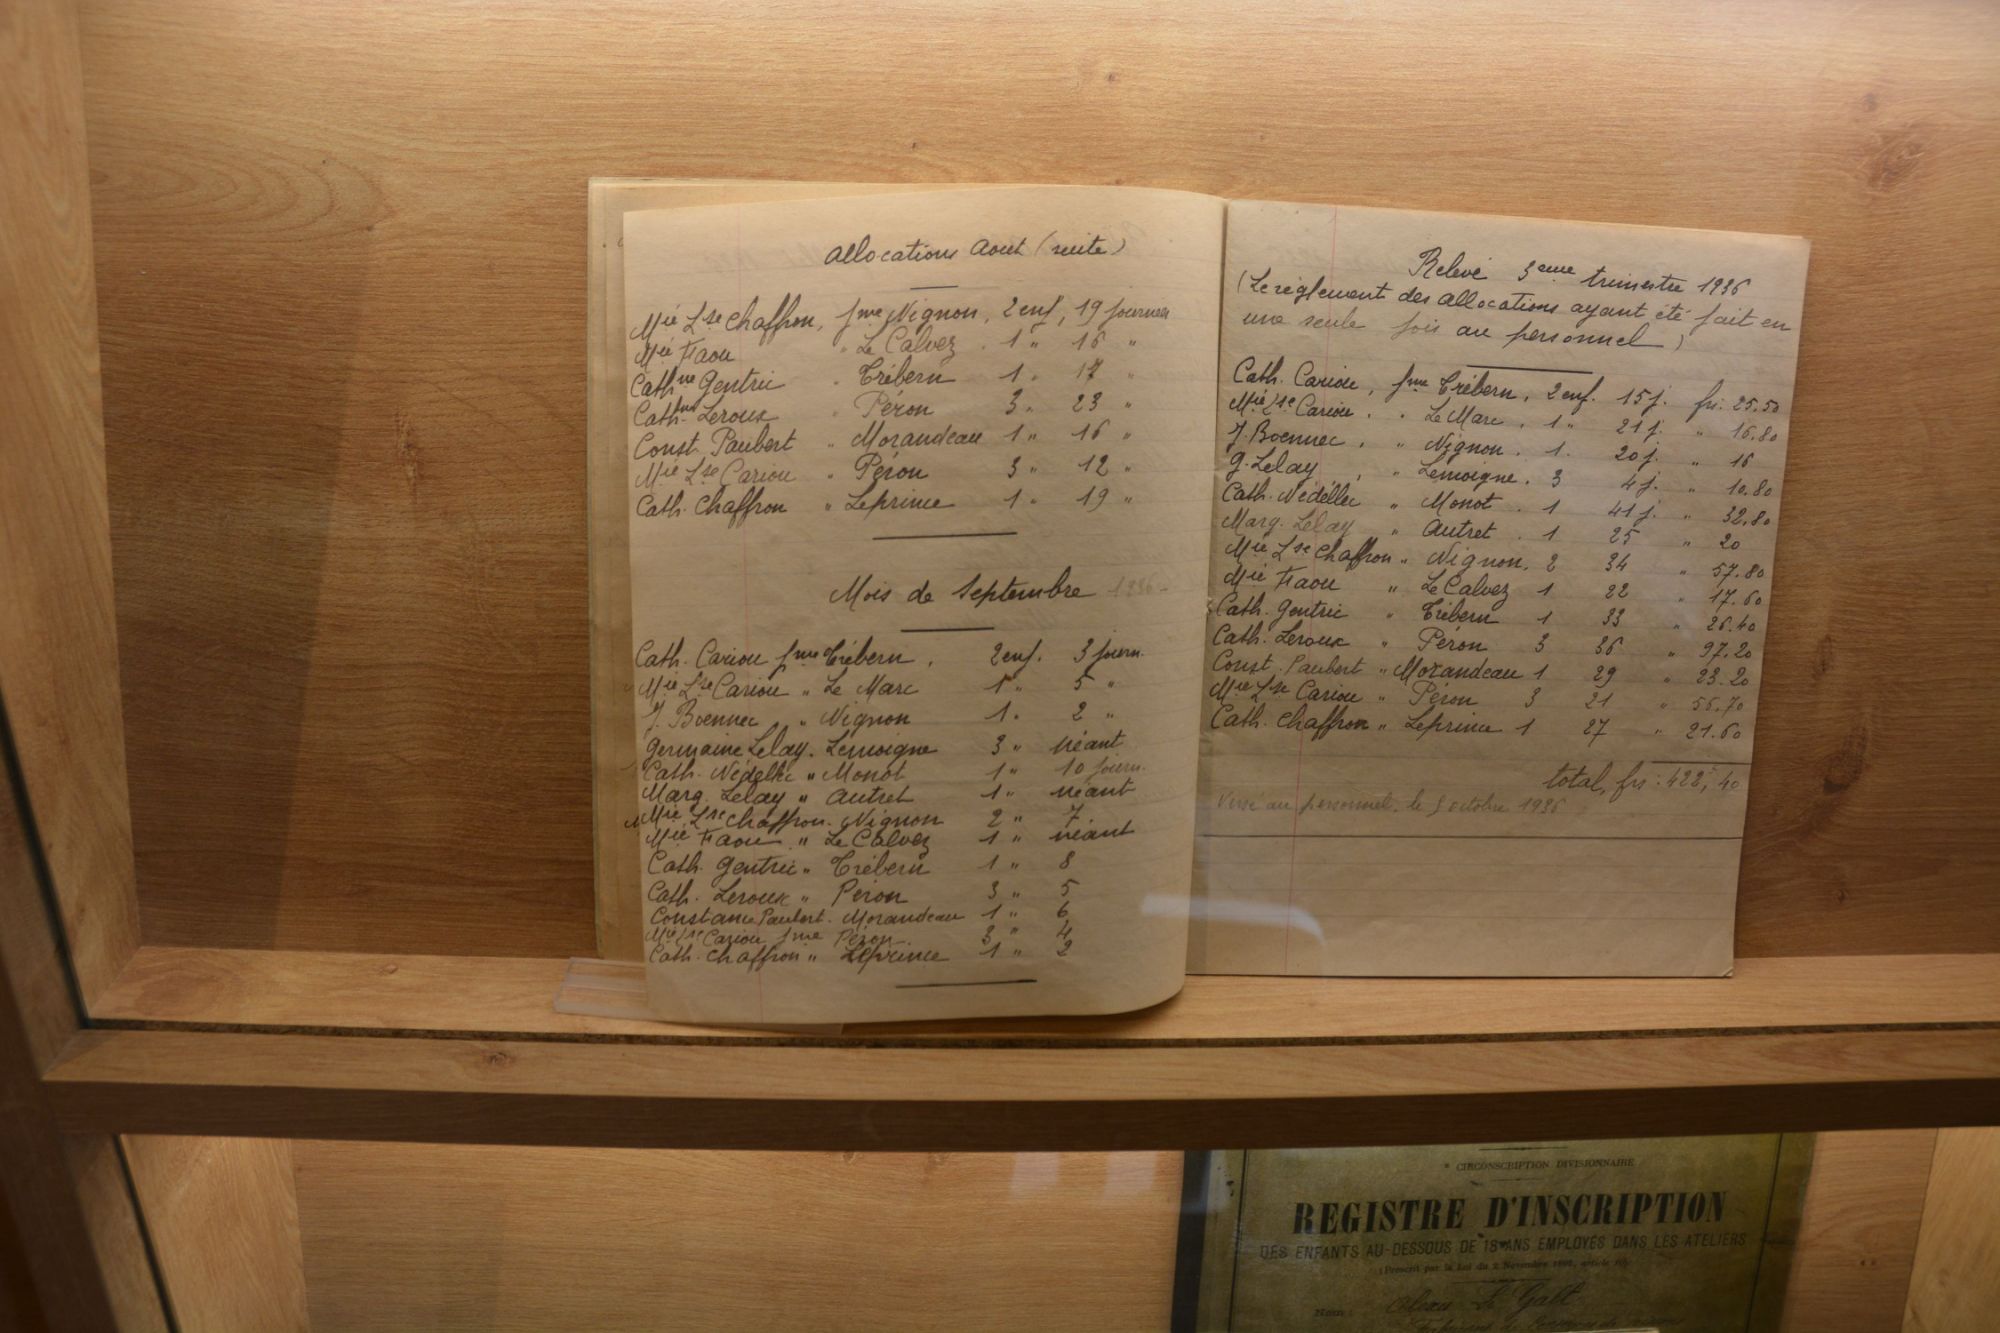 Allocations Aout (suite)
Mie Lse Chaffron, fme Nignon, 2 enf, 19 journées
Mie Faou " Le Calvez . 1 " 16 "
Cathne Gentric " Trébern 1 " 17 "
Cathne Leroux " Péron 3 " 23 "
Const. Paubert " Morandeau 1 " 16 "
Mie Lse Cariou " Péron 3 " 12 "
Cath. Chaffron " Leprince 1 " 19 "
Mois de Septembre 1936
Cath. Cariou fme Trébern . 2 enf. 3 journ.
Mie Lse Cariou " Le Marc 1 " 5 "
J. Boennec " Nignon 1 " 2 "
Germaine Lelay. Lemoigne 3 " néant
Cath. Nédellec " Monot 1 " 10 journ.
Marg. Lelay " Autret 1 " néant
Mie Lse Chaffron. Nignon 2 " 7
Mie Faou " Le Calvez 1 " néant
Cath. Gentric " Trébern 1 " 8
Cath. Leroux " Péron 3 " 5
Constance Paubert. Morandeau 1 " 6
Mie Lse Cariou fme Péron. 3 " 4
Cath. Chaffron " Leprince 1 " 2
Relevé 3eme trimestre 1936
(Le règlement des allocations ayant été fait en
une seule fois au personnel)
Cath. Cariou, fme Trébern, 2 enf. 15 j. frs. 25.50
Mie Lse Cariou . " Le Marc . 1 " 21 j. " 16.80
J. Boennec . " Nignon . 1 . 20 j. " 16
G. Lelay , " Lemoigne . 3 4 j. " 10.80
Cath. Nédéllec " Monot . 1 41 j. " 32.80
Marg. Lelay " Autret . 1 25 " 20
Mie Lse Chaffron " Nignon, 2 34 " 57.80
Mie Faou " Le Calvez 1 22 " 17.60
Cath. Gentric " Trébern 1 33 " 26.40
Cath. Leroux " Péron 3 36 " 97.20
Const. Paubert " Morandeau 1 29 " 23.20
Mie Lse Cariou " Péron 3 21 " 56.70
Cath. Chaffron " Leprince 1 27 " 21.60
total, frs : 422,40
Versé au personnel, le 9 octobre 1936
CIRCONSCRIPTION DIVISIONNAIRE
REGISTRE D'INSCRIPTION
DES ENFANTS AU-DESSOUS DE 18 ANS EMPLOYÉS DANS LES ATELIERS
(Prescrit par la Loi du 2 Novembre 1892, article 10)
Nom :